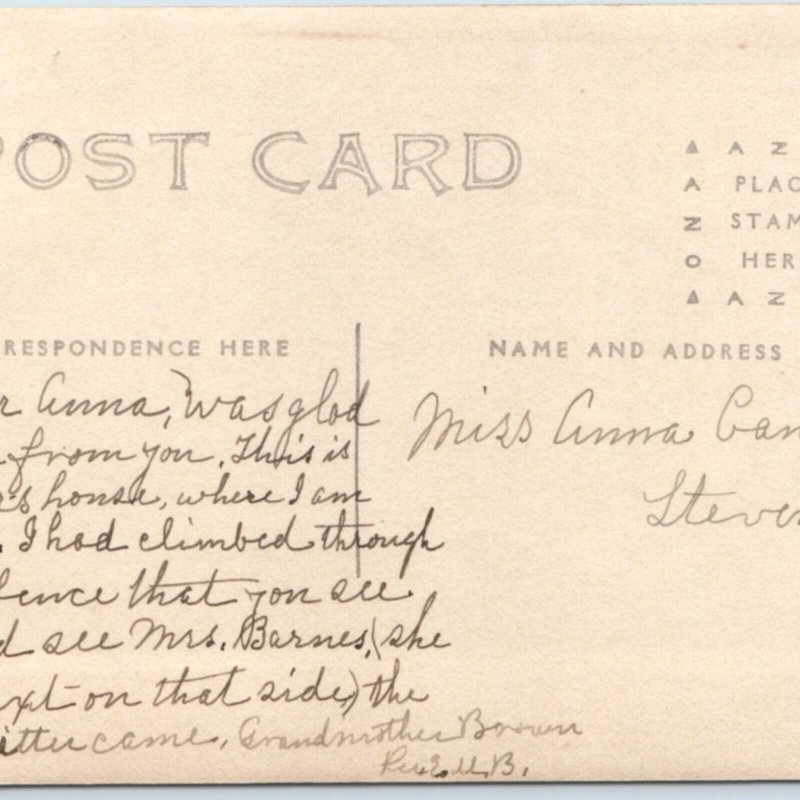 POST CARD
▲ A Z
A PLAC
Z STAM
O HER
▲ A Z
RESPONDENCE HERE
NAME AND ADDRESS
r Anna, Was glad
from you. This is
r's house, where I am
. I had climbed through
fence that you see
d see Mrs. Barnes, (she
ext on that side,) the
itter came, Grandmother Brown
Per E.M.B.
Miss Anna Can
Steven